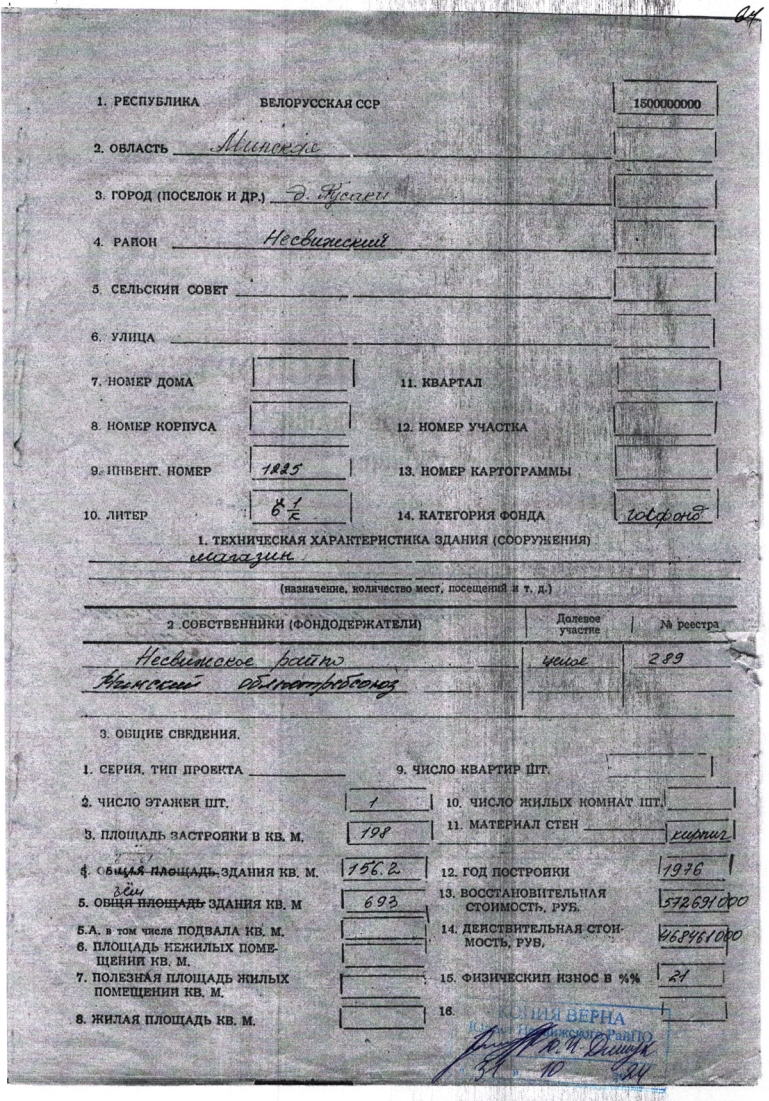 04
1. РЕСПУБЛИКА БЕЛОРУССКАЯ ССР 1500000000
2. ОБЛАСТЬ Минская
3. ГОРОД (ПОСЕЛОК И ДР.) д. Русаки
4. РАЙОН Несвижский
5. СЕЛЬСКИЙ СОВЕТ
6. УЛИЦА
7. НОМЕР ДОМА 11. КВАРТАЛ
8. НОМЕР КОРПУСА 12. НОМЕР УЧАСТКА
9. ИНВЕНТ. НОМЕР 1225 13. НОМЕР КАРТОГРАММЫ
10. ЛИТЕР 1/к 14. КАТЕГОРИЯ ФОНДА госфонд
1. ТЕХНИЧЕСКАЯ ХАРАКТЕРИСТИКА ЗДАНИЯ (СООРУЖЕНИЯ)
магазин
(назначение, количество мест, посещений и т. д.)
2 .СОБСТВЕННИКИ (ФОНДОДЕРЖАТЕЛИ) Долевое участие № реестра
Несвижское райпо целое 289
Минский облпотребсоюз
3. ОБЩИЕ СВЕДЕНИЯ.
1. СЕРИЯ, ТИП ПРОЕКТА 9. ЧИСЛО КВАРТИР ШТ.
2. ЧИСЛО ЭТАЖЕЙ ШТ. 1 10. ЧИСЛО ЖИЛЫХ КОМНАТ ШТ.
3. ПЛОЩАДЬ ЗАСТРОЙКИ В КВ. М. 198 11. МАТЕРИАЛ СТЕН кирпич
4. ОБЩАЯ ПЛОЩАДЬ ЗДАНИЯ КВ. М. 156.2 12. ГОД ПОСТРОЙКИ 1976
5. ОБЩЯ ПЛОЩАДЬ ЗДАНИЯ КВ. М 693 13. ВОССТАНОВИТЕЛЬНАЯ СТОИМОСТЬ, РУБ. 572691000
5.А. в том числе ПОДВАЛА КВ. М. 14. ДЕЙСТВИТЕЛЬНАЯ СТОИМОСТЬ, РУБ, 468461000
6. ПЛОЩАДЬ НЕЖИЛЫХ ПОМЕЩЕНИЙ КВ. М.
7. ПОЛЕЗНАЯ ПЛОЩАДЬ ЖИЛЫХ ПОМЕЩЕНИИ КВ. М. 15. ФИЗИЧЕСКИЙ ИЗНОС В %% 21
8. ЖИЛАЯ ПЛОЩАДЬ КВ. М. 16.
КОПИЯ ВЕРНА
Несвижского РайПО
31 10 24